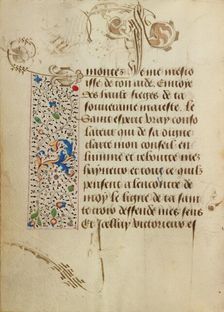 montes Dieu mes o
ille de ton aide Enuoye
des haults sieges de ta
souueraine maieste Le
Saint esperit vray conso
lateur qui de sa digne
clarte mon conseil en
lumine et reboute mes
hayneux et tous ce qui
pensent a lencontre de
moy Le signe de ta sain
te croix deffende mes sens
Et Icelluy victorieux es